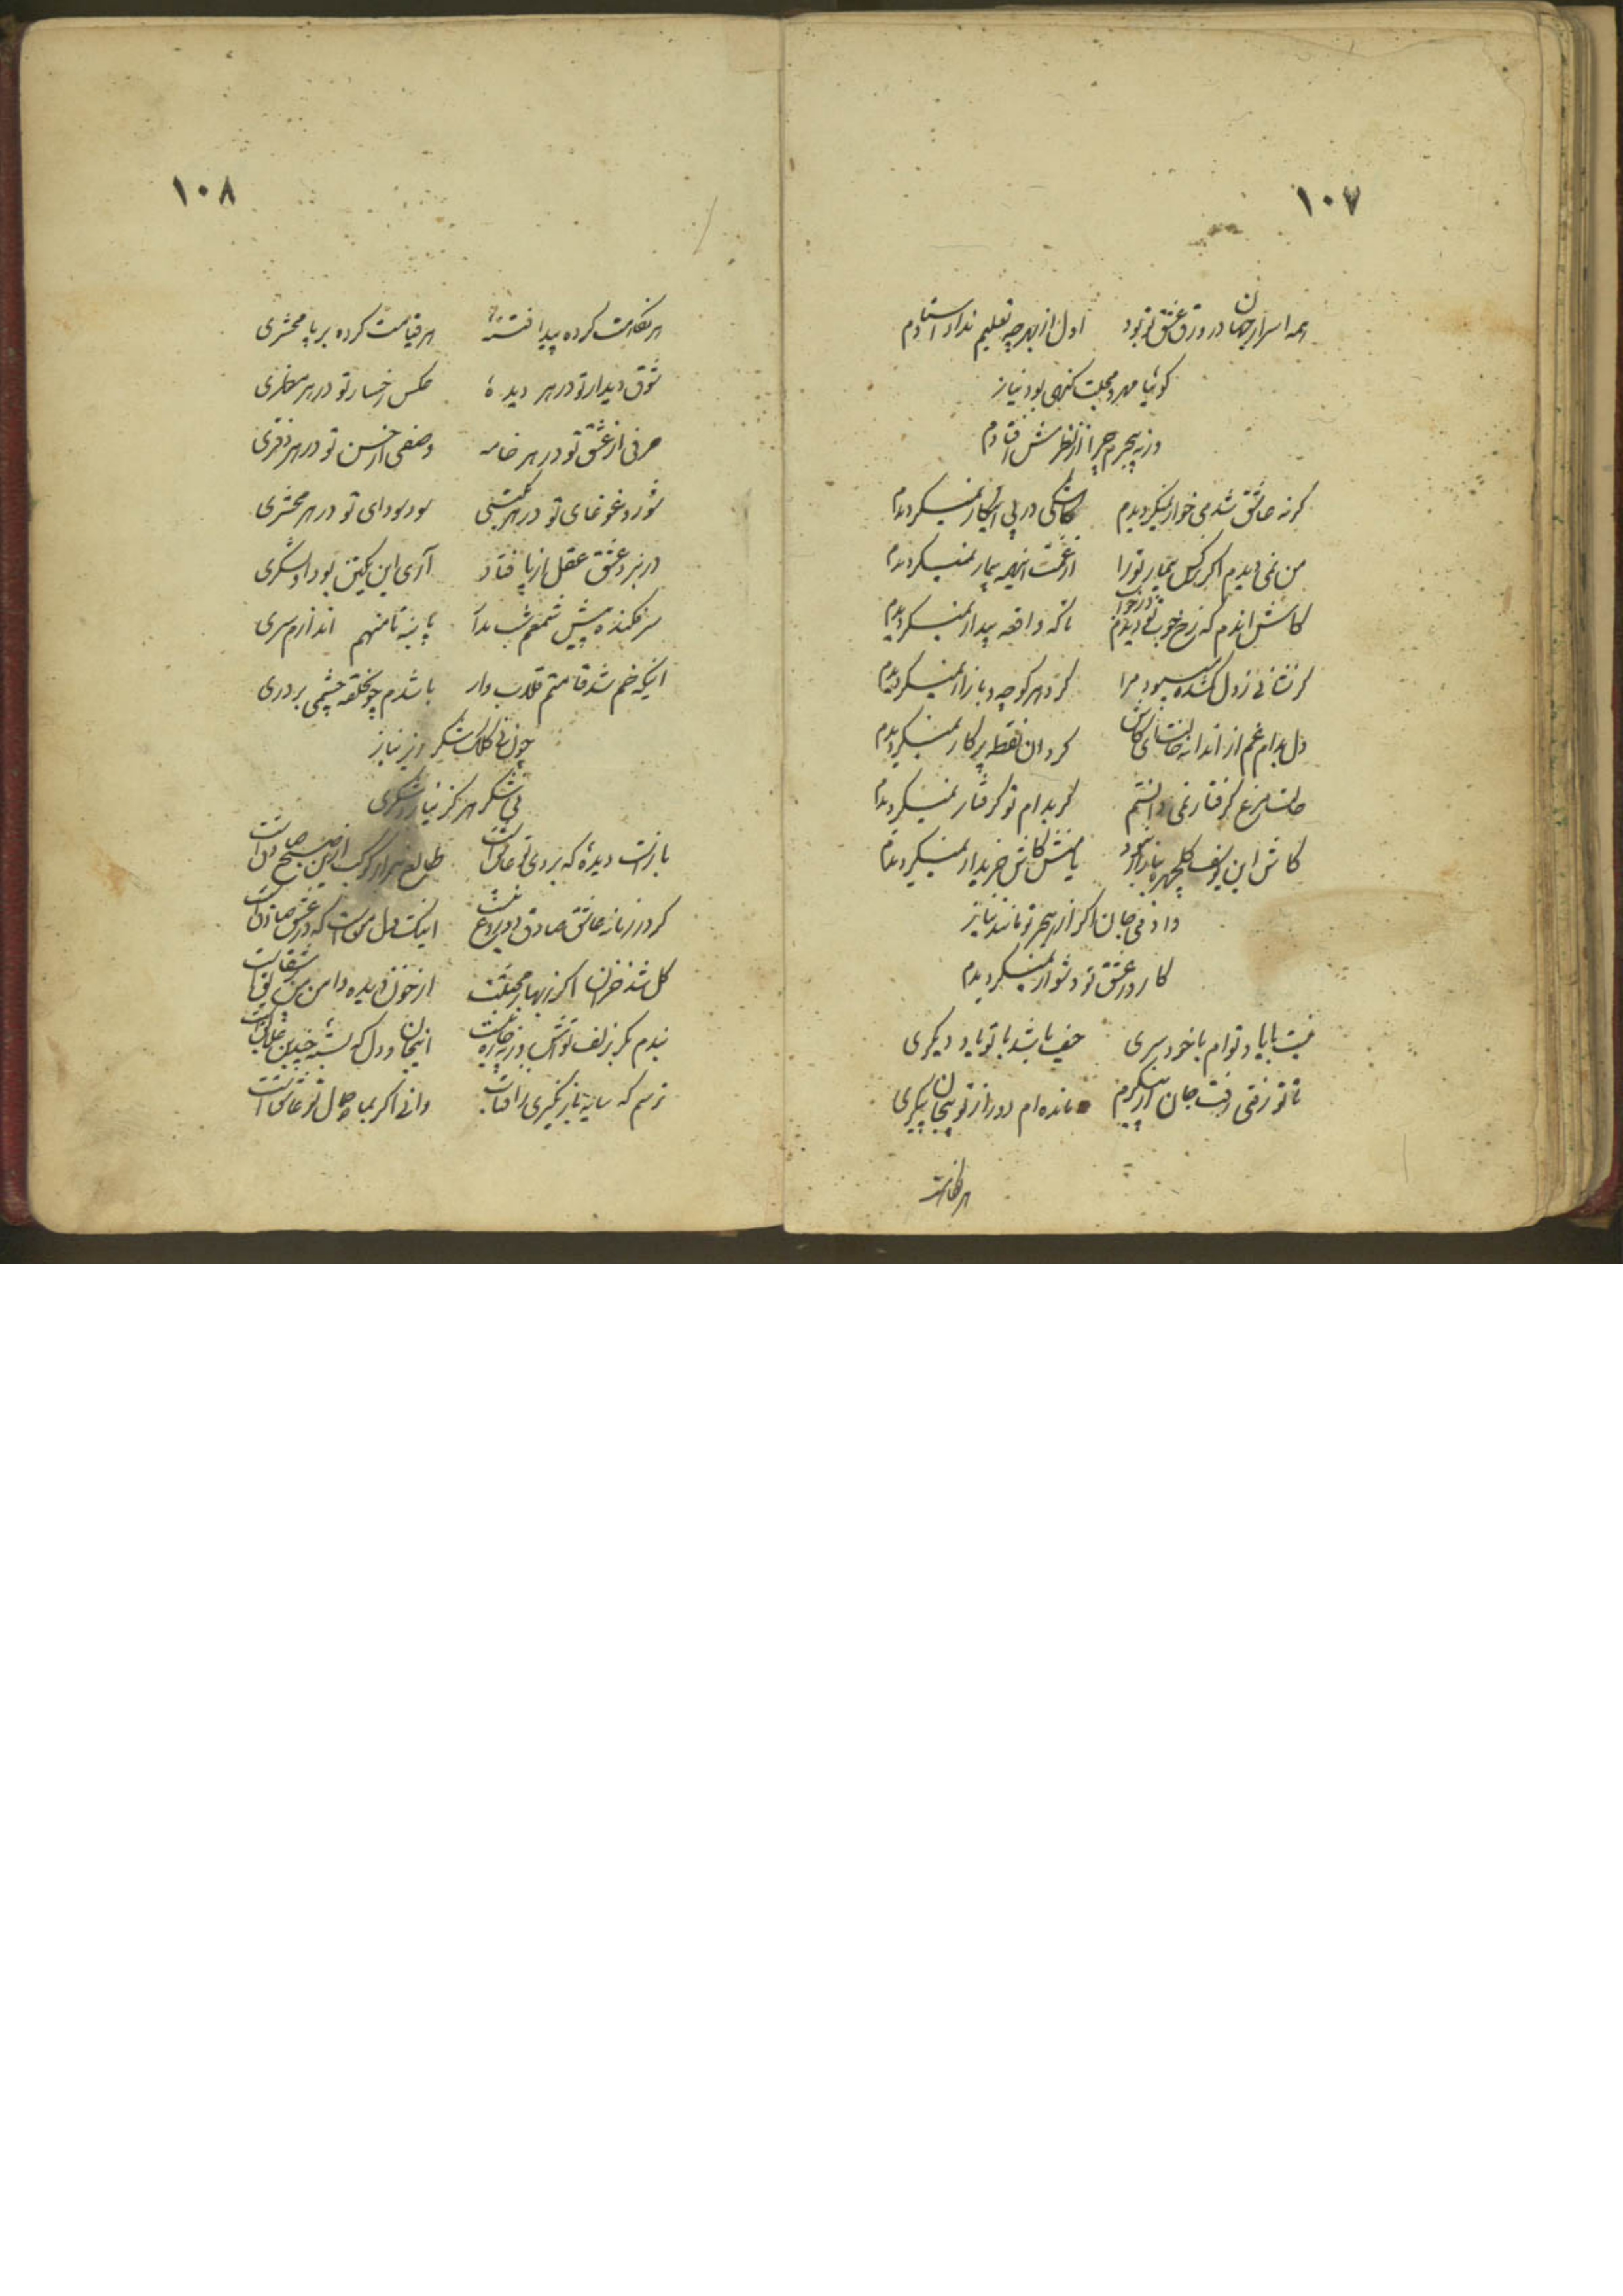 ۱۰۷
همه اسرار جهان در ورق عشق تو بود اول از بهر چه تعلیم نداد استادم
گوئیا مهر و محبت گنهی بود نیاز
ورنه بیجرم چرا از نظرش افتادم
گر نه عاشق شدمی خوار نمیگردیدم کاشکی در پی اینکار نمیگردیدم
من نمی دیدم اگر نرگس بیمار تو را از غمت اینهمه بیمار نمیگردیدم
کاش اندم که رخ خوب تو در خواب دیدم ناگه واقعه بیدار نمیگردیدم
گر نشانی ز دل گمشده میبود مرا گرد هر کوچه و بازار نمیگردیدم
دل بدام غم از اندانه خالت ای کاش گرد ان نقطه پرکار نمیگردیدم
حالت مرغ گرفتار نمی دانستم گر بدام تو گرفتار نمیگردیدم
کاش این یوسف گلچهره ببازار نبود یا منش کاش خریدار نمیگردیدم
دادمی جان اگر از هجر تو مانند نیاز
کار در عشق تو دشوار نمیگردیدم
نیست با یاد توام با خود سری حیف باشد با تو یاد دیگری
تا تو رفتی رفت جان از پیکرم مانده ام دور از تو بیجان پیکری
هر نگاهت
۱۰۸
هر نگاهت کرده پیدا فتنهٔ هر قیامت کرده بر پا محشری
شوق دیدار تو در هر دیدهٔ عکس رخسار تو در هر منظری
حرفی از عشق تو در هر خامه وصفی از حسن تو در هر دفتری
شور و غوغای تو در هر مکتبی سور سودای تو در هر محشری
در نبرد عشق عقل از پا فتاد آری این یکتن بود او لشگری
سر فکنده پیش شمعم شب مدام تا به پا منهم اندازم سری
اینکه خم شد قامتم قلاب وار باشدم چو نحلقه چشمی بر دری
چون نی کلک شکر ریز نیاز
نی شکر هرگز نیارد شکری
باز است دیدهٔ که بروی تو عاشق است طالع هزار کوکب ازین صبح صادق است
گر در زمانه عاشق صادق بود دروغ نیست اینک دل من است که در عشق صادق است
گل شد خزان اگر ز بهار محبتت از خون دیده دامن من پر شقایق است
بندم مگر بزلف تو اش ورنه چاره چیست اینجان و دل که بسته چندین علایق است
ترسم که سایه باز نگیری ز افتاب دانی اگر بماه جمال تو عاشق است